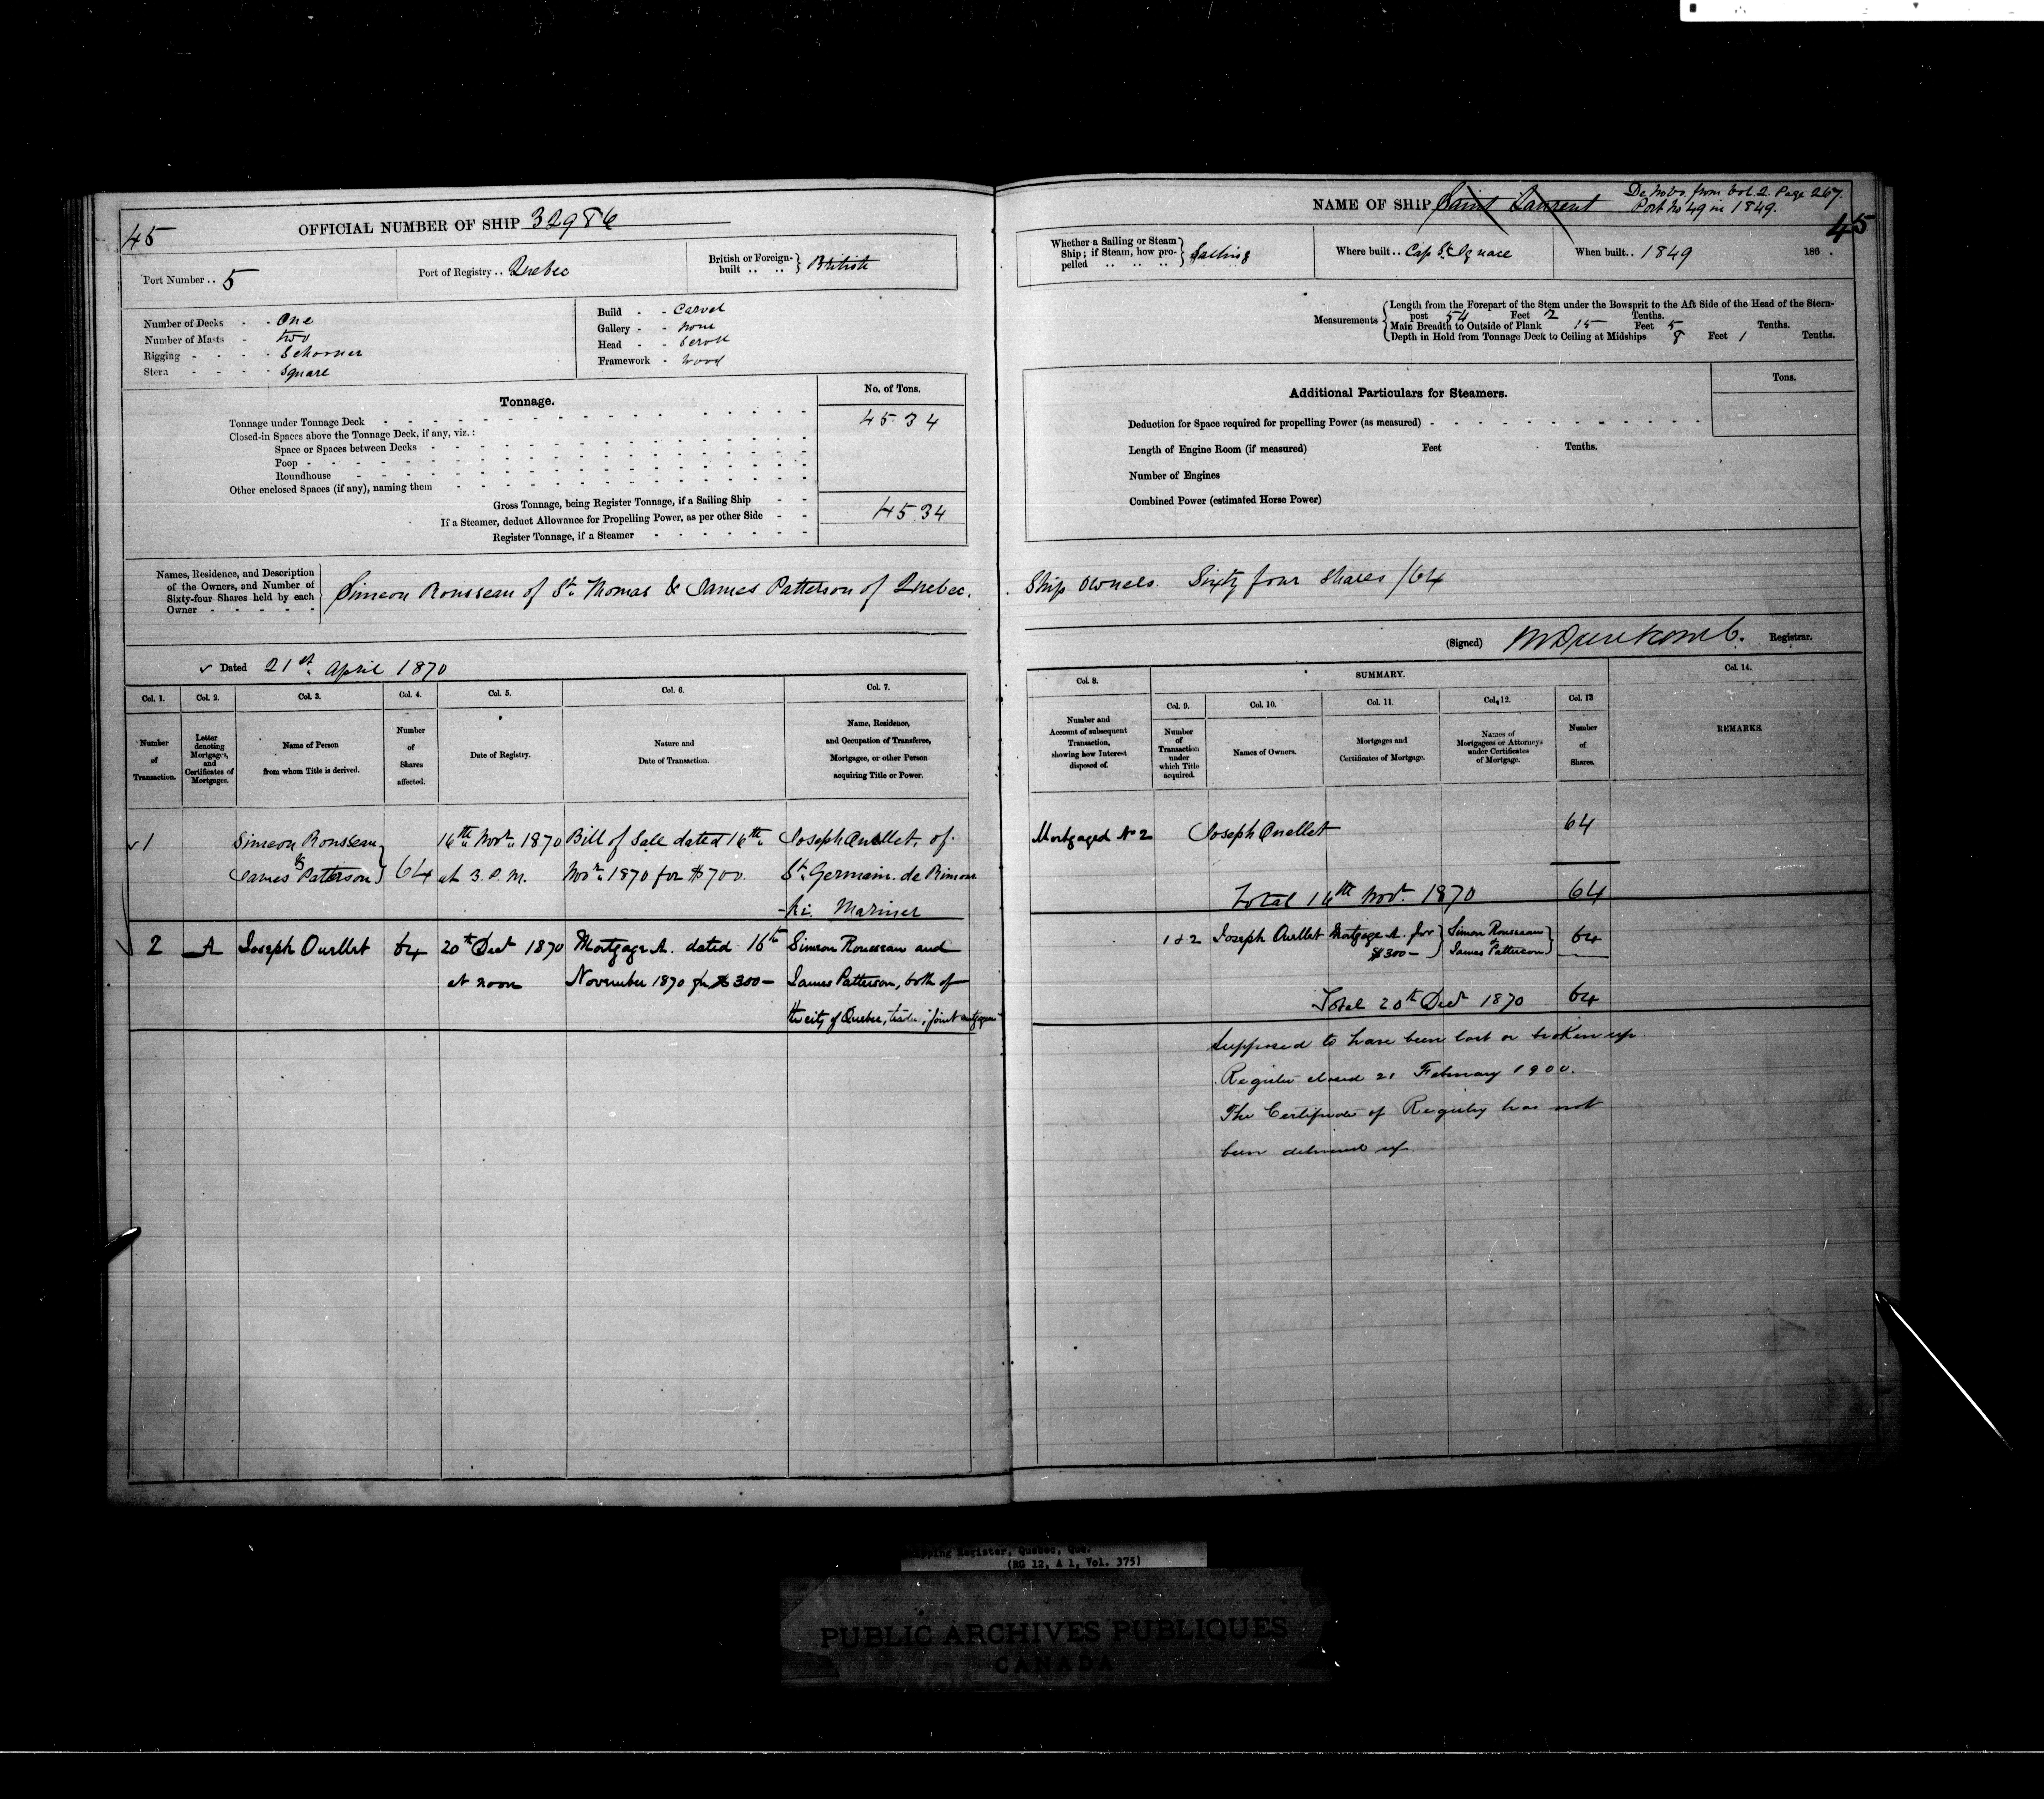 45
OFFICIAL NUMBER OF SHIP 32986
Port Number .. 5
Port of Registry .. Quebec
British or Foreign-built .. .. } British
Number of Decks - - One
Number of Masts - two
Rigging - - - - Schooner
Stern - - - - Square
Build - - Carvel
Gallery - - None
Head - - Scroll
Framework - Wood
Tonnage.
No. of Tons.
Tonnage under Tonnage Deck 45 34
Closed-in Spaces above the Tonnage Deck, if any, viz.:
Space or Spaces between Decks
Poop
Roundhouse
Other enclosed Spaces (if any), naming them
Gross Tonnage, being Register Tonnage, if a Sailing Ship 45 34
If a Steamer, deduct Allowance for Propelling Power, as per other Side
Register Tonnage, if a Steamer
Names, Residence, and Description
of the Owners, and Number of
Sixty-four Shares held by each
Owner
Simeon Rousseau of St. Thomas & James Patterson of Quebec.
Dated 21st April 1870
Col. 1. Col. 2. Col. 3. Col. 4. Col. 5. Col. 6. Col. 7.
Number of Transaction.
Letter denoting Mortgages, and Certificates of Mortgage.
Name of Person from whom Title is derived.
Number of Shares affected.
Date of Registry.
Nature and Date of Transaction.
Name, Residence, and Occupation of Transferee, Mortgagee, or other Person acquiring Title or Power.
1 Simeon Rousseau 16th Novr. 1870 Bill of Sale dated 16th Joseph Ouellet, of
& James Patterson } 64 at 3. P.M. Novr. 1870 for $700. St. Germain de Rimous
-ki Mariner
2 A Joseph Ouellet 64 20th Decr 1870 Mortgage A. dated 16th Simeon Rousseau and
at noon November 1870 for $300- James Patterson, both of
the city of Quebec, joint mortgagees
NAME OF SHIP Saint Laurent
De Novo from Vol. 2. Page 267.
Port No 49 in 1849.
45
Whether a Sailing or Steam
Ship; if Steam, how pro-
pelled .. .. .. } Sailing
Where built .. Cap St. Ignace
When built .. 1849
186 .
Measurements
Length from the Forepart of the Stem under the Bowsprit to the Aft Side of the Head of the Stern-
post 54 Feet 2 Tenths.
Main Breadth to Outside of Plank 15 Feet 5 Tenths.
Depth in Hold from Tonnage Deck to Ceiling at Midships 8 Feet 1 Tenths.
Additional Particulars for Steamers.
Tons.
Deduction for Space required for propelling Power (as measured)
Length of Engine Room (if measured) Feet Tenths.
Number of Engines
Combined Power (estimated Horse Power)
Ship Owners. Sixty four Shares /64
(Signed) Registrar.
Col. 8. SUMMARY. Col. 14.
Col. 9. Col. 10. Col. 11. Col. 12. Col. 13
Number and Account of subsequent Transaction, showing how Interest disposed of.
Number of Transaction under which Title acquired.
Names of Owners.
Mortgages and Certificates of Mortgage.
Names of Mortgagees or Attorneys under Certificates of Mortgage.
Number of Shares.
REMARKS.
Mortgaged No 2 Joseph Ouellet 64
Total 16th Novr. 1870 64
1 & 2 Joseph Ouellet Mortgage A. for } Simon Rousseau 64
$300- } & James Patterson
Total 20th Decr 1870 64
Supposed to have been lost or broken up.
Register closed 21 February 1900.
The Certificate of Registry has not
been delivered up.
Shipping Register, Quebec, Que.
(RG 12, A 1, Vol. 375)
PUBLIC ARCHIVES PUBLIQUES
CANADA